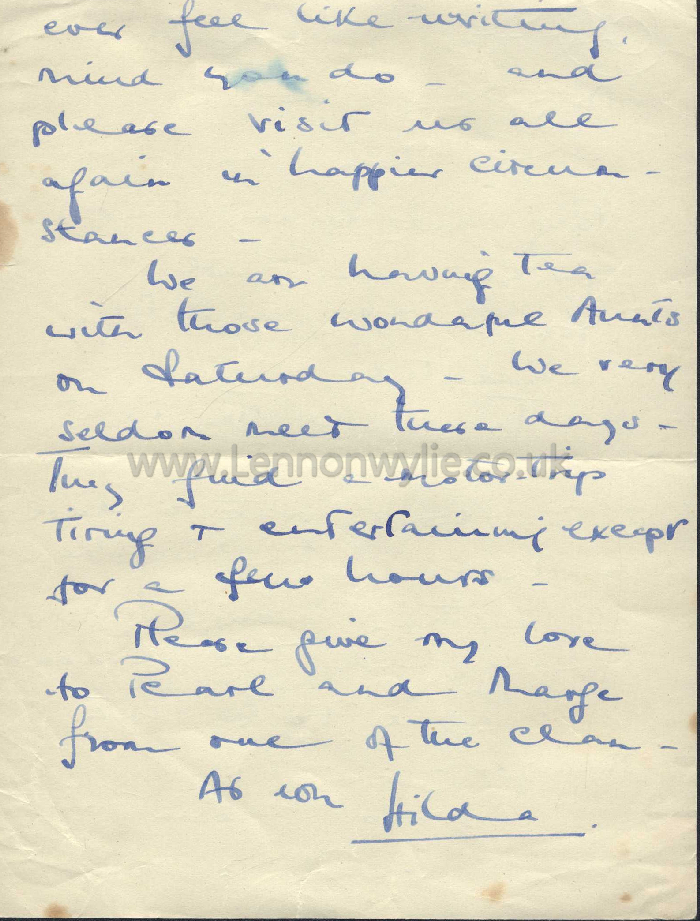 ever feel like writing,
mind you do - and
please visit us all
again in happier circum-
stances -
We are having Tea
with those wonderful Aunts
on Saturday - We very
seldom meet these days -
www.Lennonwylie.co.uk
They find a motor-trip
Tiring & entertaining except
for a few hours -
Please give my love
to Pearl and Marge
from one of the Clan -
As ever Hilda.